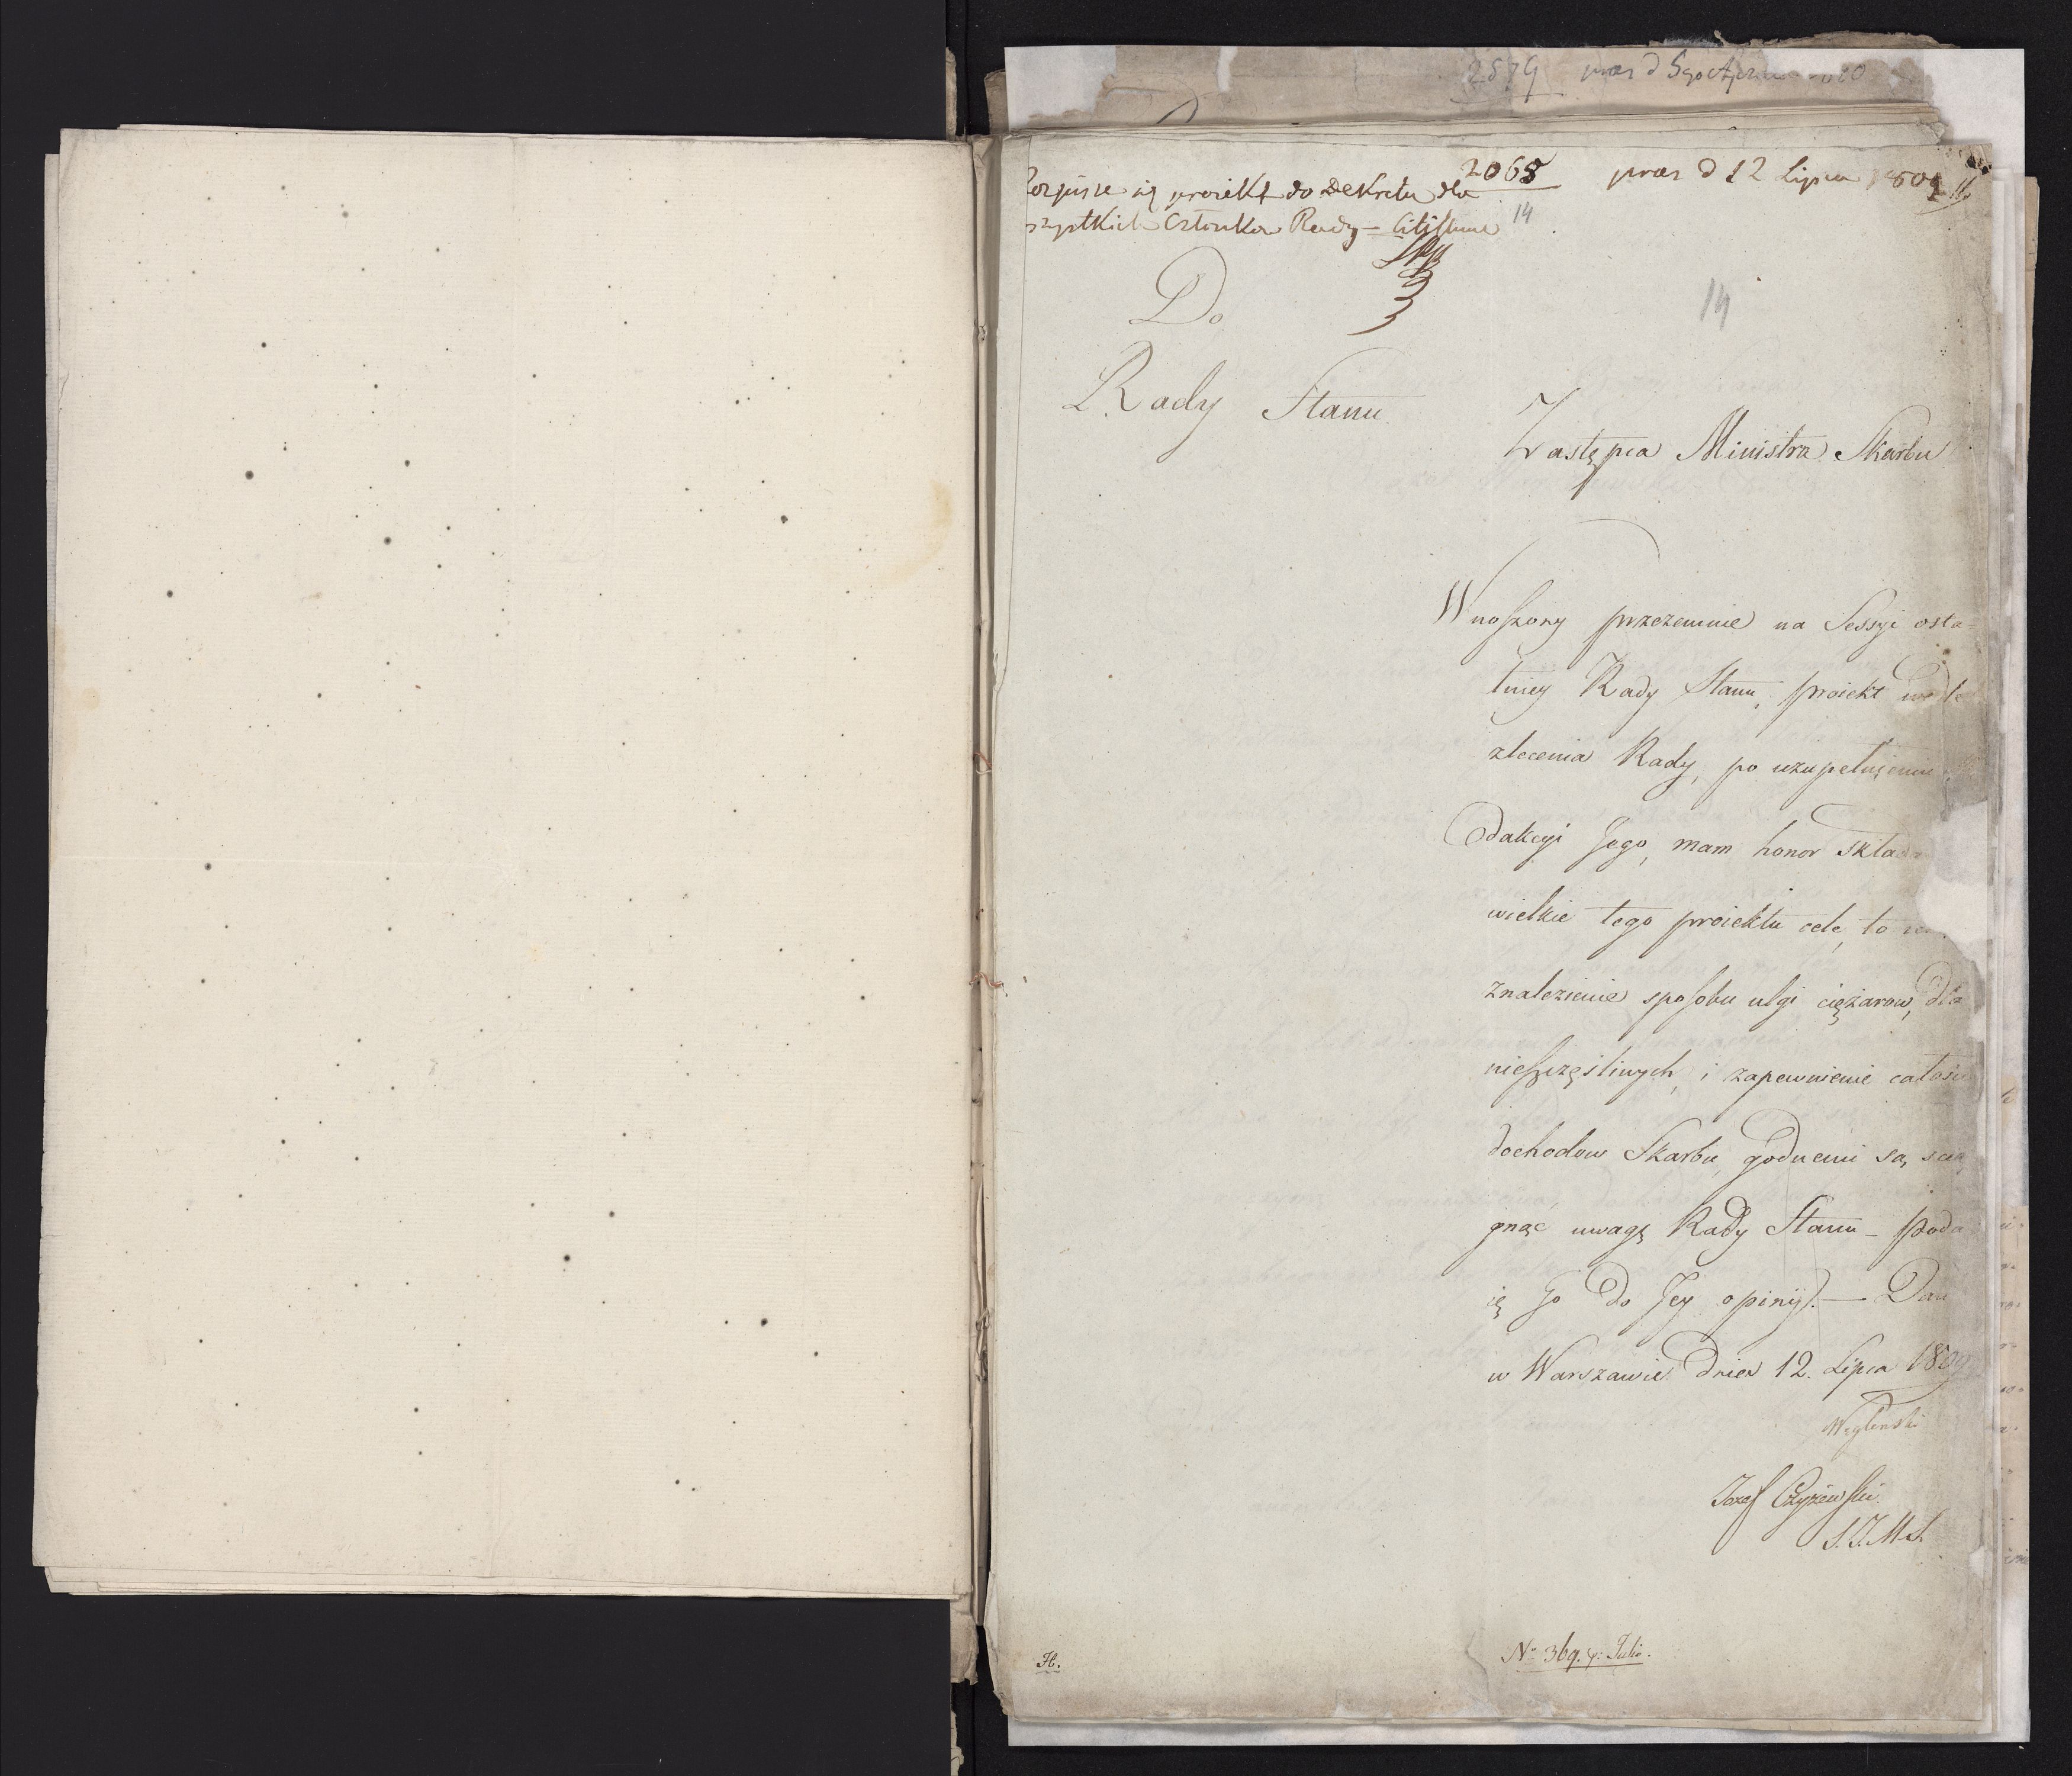 2879 præs d 5go
2068 præs d 12 Lipca 1809
Rozpisze się proiekt do Dekretu dla
wszystkich Członkow Rady – citissime
14
14
Do
Rady Stanu
Zastępca Ministra Skarbu
Wnoszony przezemnie na Sessyi osta-
tniey Rady Stanu, proiekt wedle
zlecenia Rady, po uzupełnieniu
dakcyi Jego, mam honor składa
wielkie tego proiektu cele, to
znalezienie sposobu ulgi ciężarow, dla
nieszczęśliwych, i zapewnienie całości
dochodow Skarbu, godnemi są, scią
gnąć uwagę Rady Stanu – poda
ię Go do Jey opinij. — Dan
w Warszawie dnia 12. Lipca 1809
Węgleński
Jozef Czyżewski
S.J.M.S.
H.
No 369. Julii.